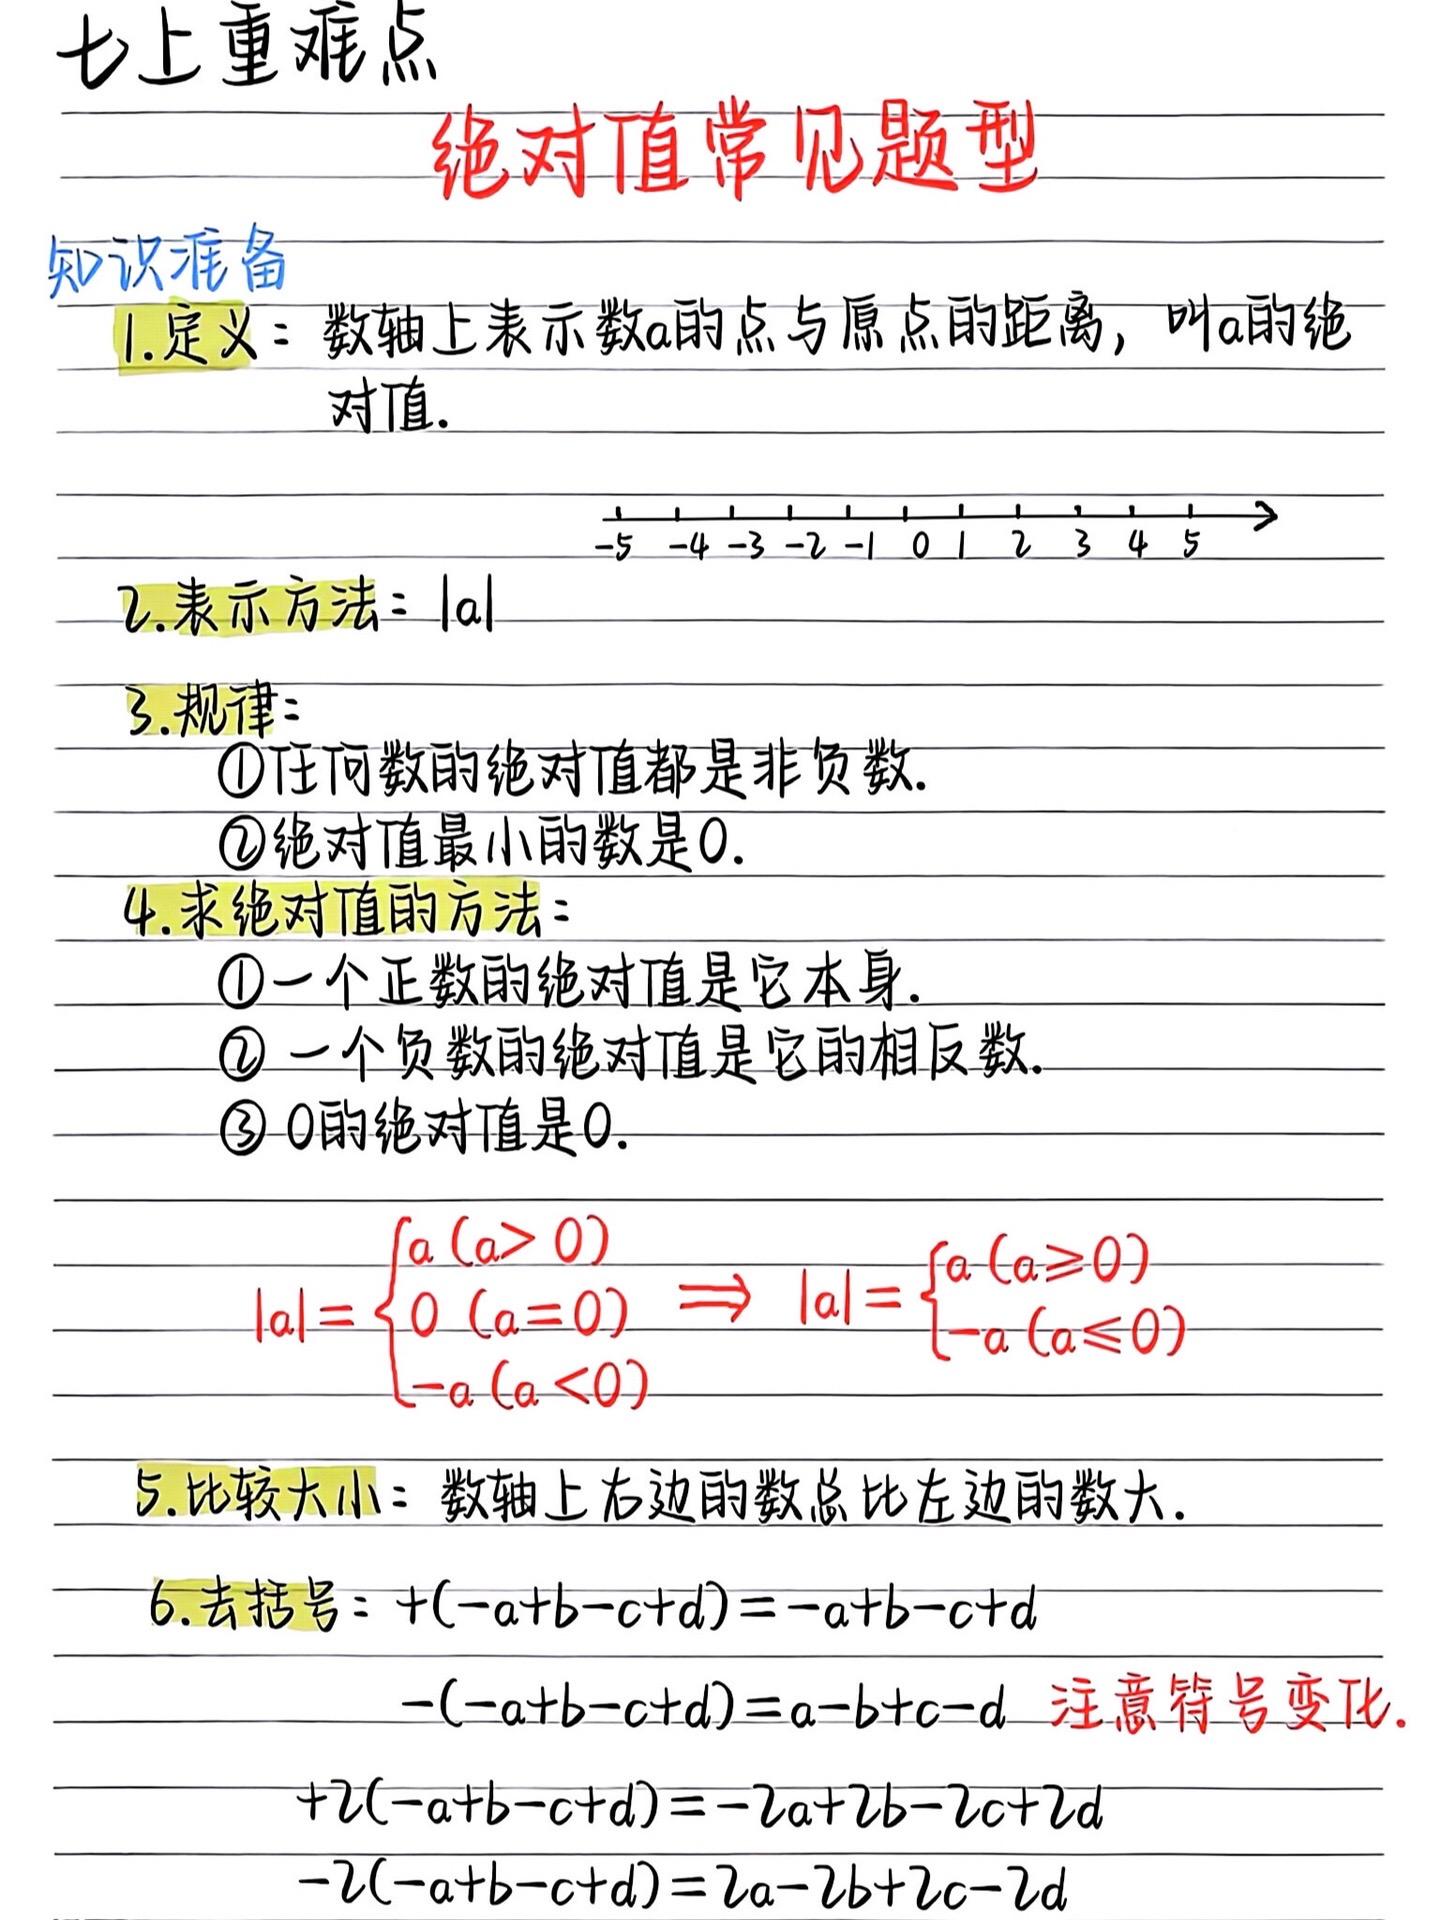 七上重难点
绝对值常见题型
知识准备
1.定义：数轴上表示数a的点与原点的距离，叫a的绝
对值.
-5 -4 -3 -2 -1 0 1 2 3 4 5
2.表示方法：|a|
3.规律：
①任何数的绝对值都是非负数.
②绝对值最小的数是0.
4.求绝对值的方法：
①一个正数的绝对值是它本身.
② 一个负数的绝对值是它的相反数.
③ 0的绝对值是0.
|a|={a(a>0) 0(a=0) -a(a<0) ⟹ |a|={a(a≥0) -a(a≤0)
5.比较大小：数轴上右边的数总比左边的数大.
6.去括号：+(-a+b-c+d)=-a+b-c+d
-(-a+b-c+d)=a-b+c-d 注意符号变化.
+2(-a+b-c+d)=-2a+2b-2c+2d
-2(-a+b-c+d)=2a-2b+2c-2d